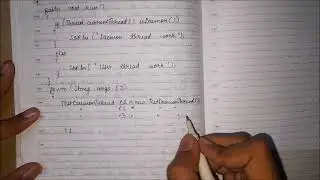 public void run()
{
if (Thread.currentThread().isDaemon())
{
Sopln("Daemon thread work");
}
else
{
Sopln("User thread work");
}
psvm (String args[])
{
TestDaemonThread t1 = new TestDaemonThread()
" t2 = " "
" t3 = " "
t1